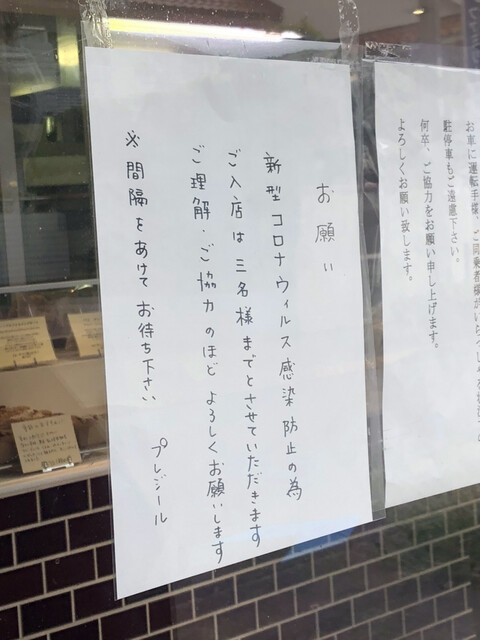 お願い
新型コロナウィルス感染防止の為
ご入店は三名様までとさせていただきます
ご理解・ご協力のほどよろしくお願いします
※間隔をあけてお待ち下さい
プレジール
お車に運転手様、ご同乗者様がいらっしゃる
駐停車もご遠慮下さい。
何卒、ご協力をお願い申し上げます。
よろしくお願い致します。